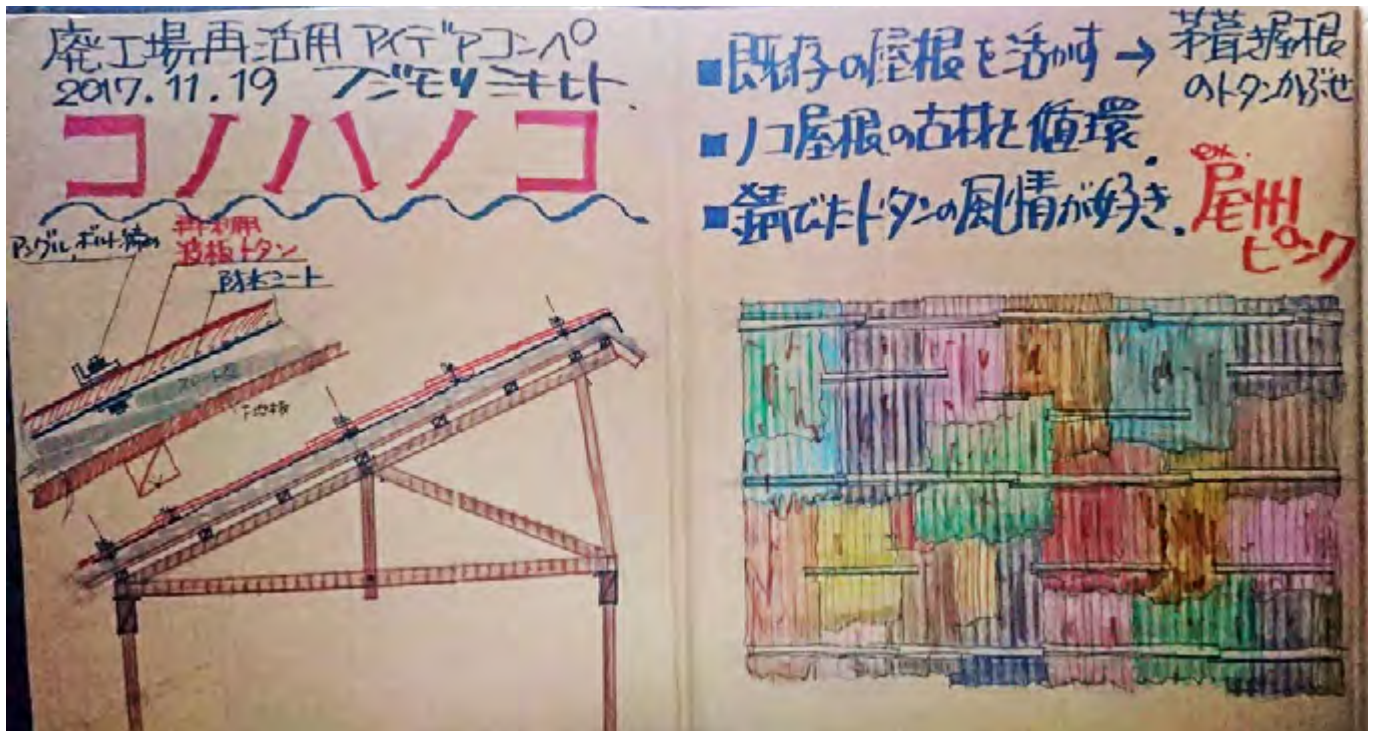 廃工場再活用 アイデアコンペ
2017.11.19 フジモリミキヒト
コノハノコ
アングル、ボルト締め
再利用
波板トタン
防水シート
スレート瓦
下地板
■既存の屋根を活かす → 茅葺き屋根
のトタンかぶせ
■ノコ屋根の古材と循環.
■錆びたトタンの風情が好き.
ex.
尾州
ピンク